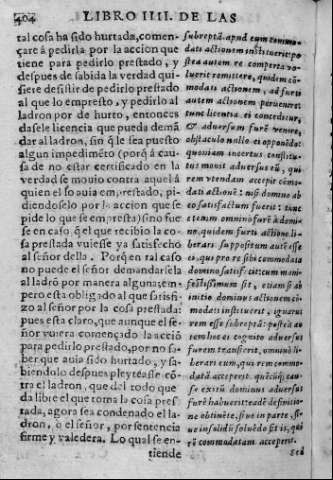 404 LIBRO IIII. DE LAS
tal cosa ha sido hurtada, comen-
çare à pedirla por la accion que
tiene para pedirlo prestado, y
despues de sabida la verdad qui-
siere desistir de pedirlo prestado
al que lo empresto, y pedirlo al
ladron por de hurto, entonces
dasele licencia que pueda demã
dar al ladron, sin q̃ le sea puesto
algun impedimẽto (porq̃ à cau-
sa de no estar certificado en la
verdad se mouio contra aquel à
quien el so auia emprestado, pi-
diendoselo por la accion que se
pide lo que se empresta) sino fue
se en caso, q̃ el que recibio la co-
sa prestada vuiesse ya satisfecho
al señor della. Porq̃ en tal caso
no puede el señor demandarsela
al ladrõ por manera alguna:em-
pero esta obligado al que satisfi-
zo al señor por la cosa prestada:
pues esta claro, que aunque el se-
ñor vuiera començado la acciõ
para pedirlo prestado, por no sa-
ber que auia sido hurtado, y sa-
biendolo despues pleyteasse cõ-
tra el ladron, que del todo que
da libre el que toma la cosa pres
tada, agora sea condenado el la-
dron, o el señor, por sentencia
firme y valedera. Lo qual se en-
tiende
subrepta. apud eum commo-
dati actionem instituerit: po
stea autem re comperta vo-
luerit remittere, quidem cõ-
modati actionem, ad furti
autem actionem peruenire:
tunc licentia ei conceditur,
& aduersus furẽ venire,
obstaculo nullo ei opponẽdo:
quoniam incertus constitu-
tus mouit aduersus eũ, qui
rem vtendam recepit cõmo-
dati actionẽ: nisi domino ab
eo satisfactum fuerit: tunc
etenim omnino furẽ à domi-
no, quidem furti actione li-
berari. Suppositum autẽ esse
ei, qui pro re sibi commodata
domino satisfecit: cum mani-
festissimum sit, etiam si ab
initio dominus actionem cõ-
modati instituerit, ignarus
rem esse subreptã: postea au
tem hoc ei cognito aduersus
furem transierit, omninò li-
berari eum, qui rem commo-
datã acceperit. quẽcũq; cau-
sæ exitũ dominus aduersus
furẽ habuerit: eadẽ definitio-
ne obtinẽte, siue in parte, si-
ue in solidũ soluẽdo sit is, qui
rẽ commodatam acceperit.
sed